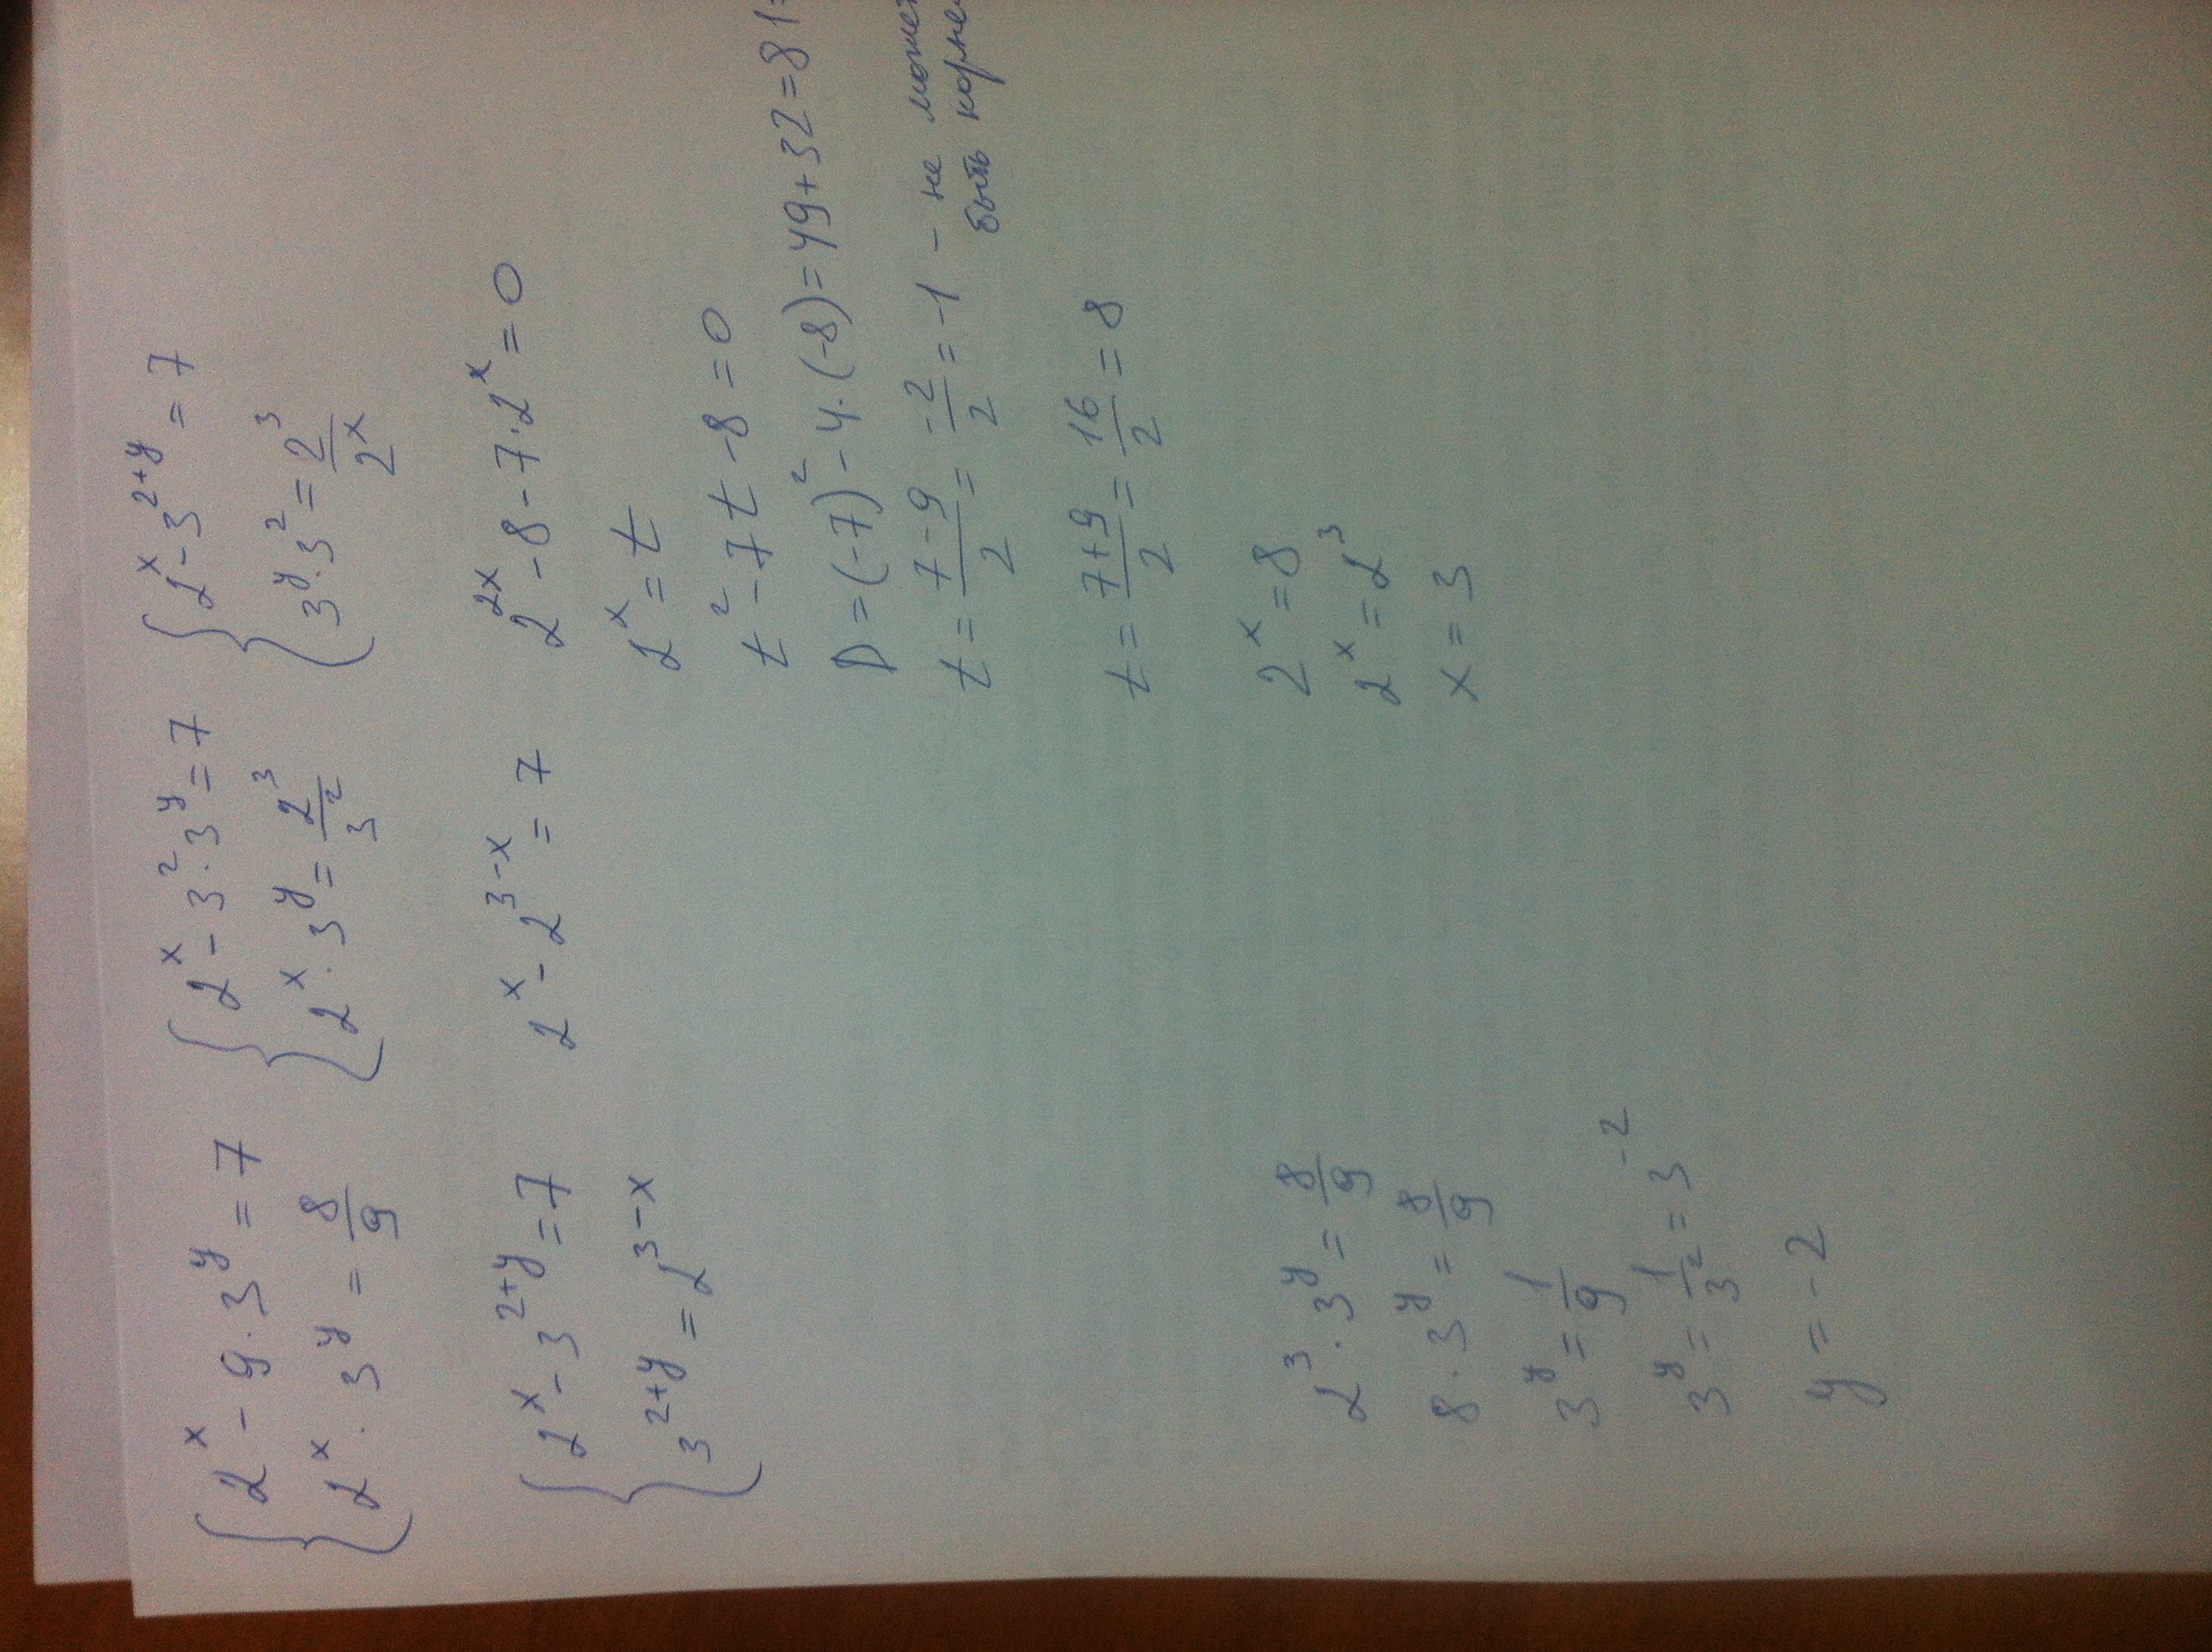 { 2^x - 9 · 3^y = 7
2^x · 3^y = 8/9
{ 2^x - 3^2 · 3^y = 7
2^x · 3^y = 2^3/3^2
{ 2^x - 3^(2+y) = 7
3^y · 3^2 = 2^3/2^x
{ 2^x - 3^(2+y) = 7
3^(2+y) = 2^(3-x)
2^x - 2^(3-x) = 7
2^(2x) - 8 - 7 · 2^x = 0
2^x = t
t^2 - 7t - 8 = 0
D = (-7)^2 - 4 · (-8) = 49 + 32 = 81
t = (7-9)/2 = -2/2 = -1 - не может
быть корне
t = (7+9)/2 = 16/2 = 8
2^x = 8
2^x = 2^3
x = 3
2^3 · 3^y = 8/9
8 · 3^y = 8/9
3^y = 1/9
3^y = 1/3^2 = 3^-2
y = -2